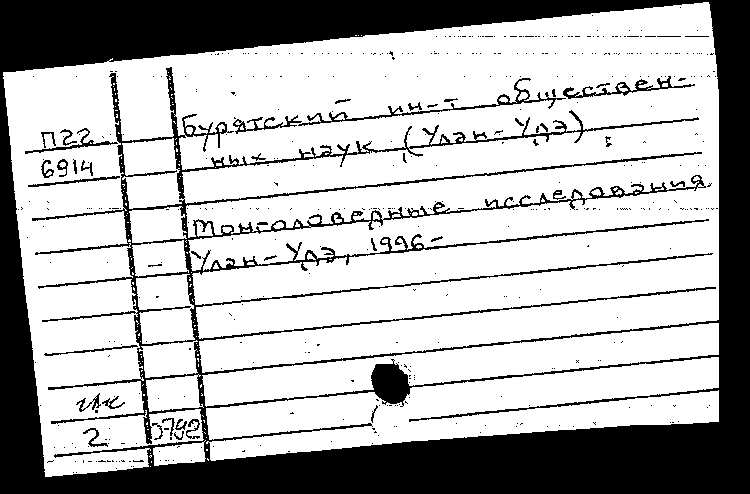 П22
6914
Бурятский ин-т обществен-
ных наук (Улан-Удэ) :
Монголоведные исследования
Улан-Удэ, 1996-
2